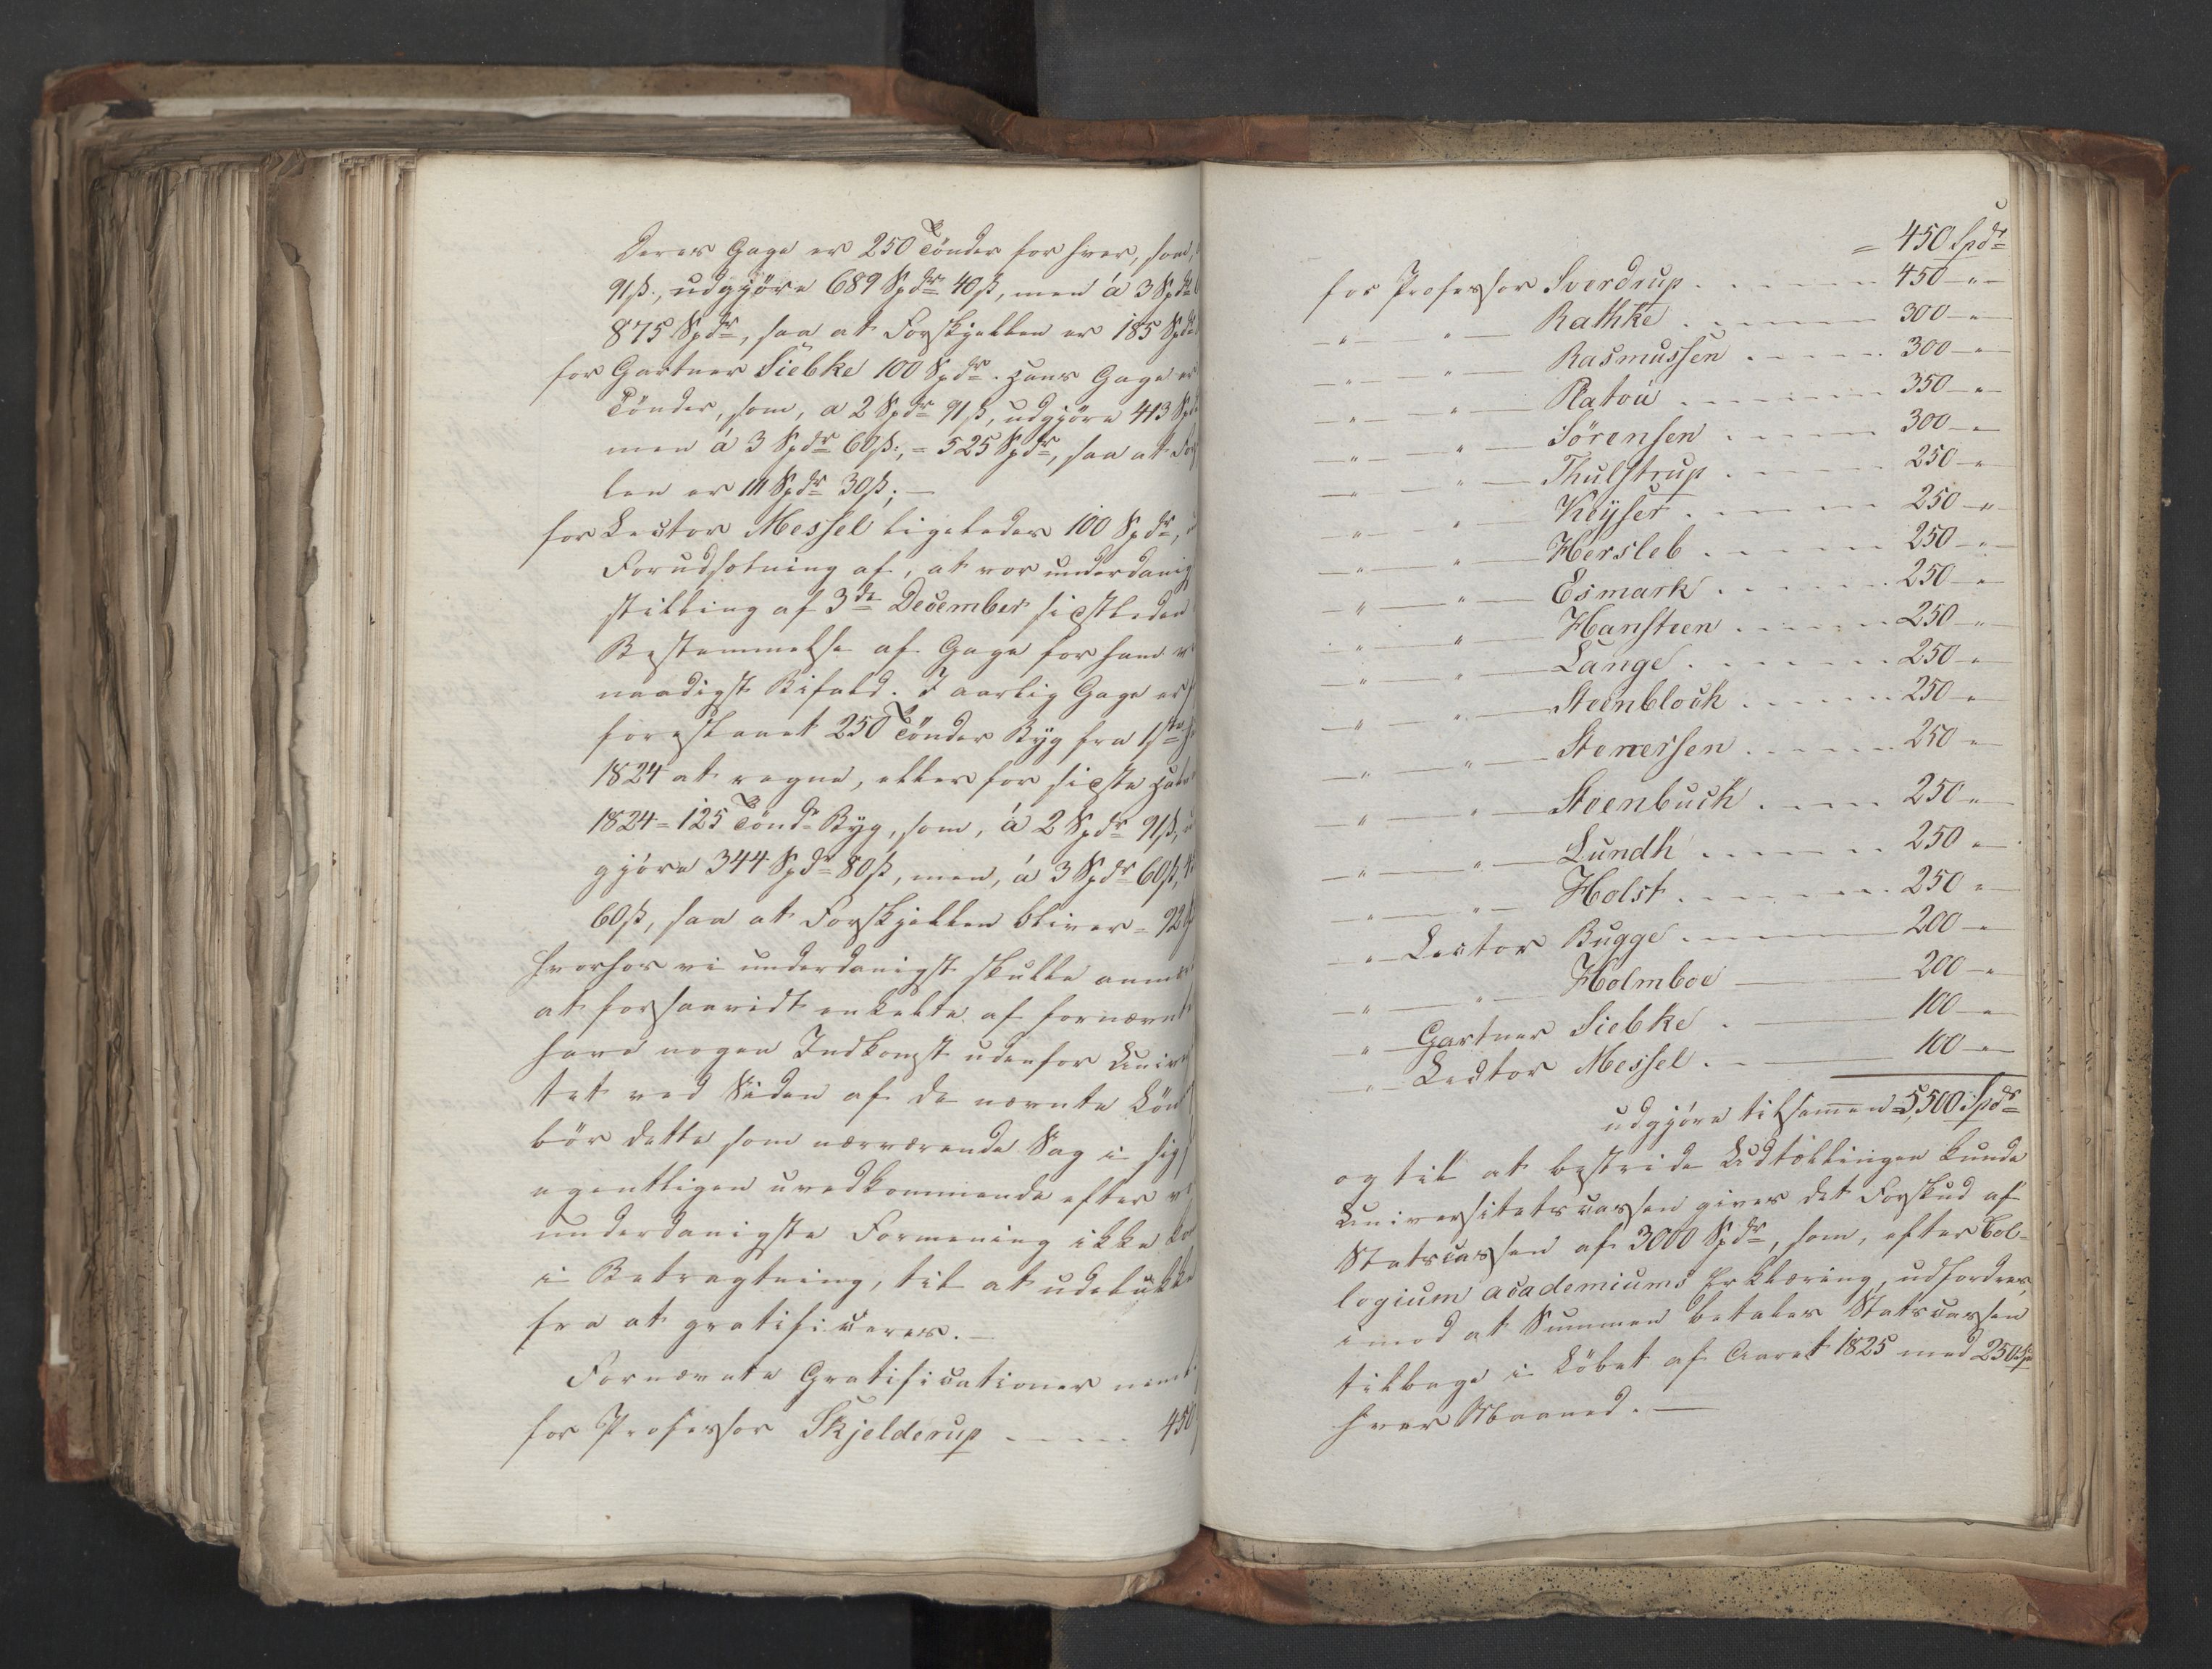 Deres Gage er 250 Tönder for hver, som,
91ß., udgjöre 689 Spdr 40ß, men á 3 Spdr
875 Spdr, saa at Forskjellen er 185 Spdr
for Gartner Siebke 100 Spdr. Hans Gage er
Tönder, som, a 2 Spdr 91ß, udgjöre 413 Spdr
men á 3 Spdr 60ß., = 525 Spdr, saa at
len er 111 Spdr 30ß. —
for Lector Messel ligeledes 100 Spdr,
Forudsætning af, at vor underdanig
stilling af 3de December sidstleden
Bestemmelse af Gage for ham
naadigst Bifald. I aarlig Gage er
foreslaaet 250 Tönder Byg fra 1ste
1824 at regne, eller for sidste Halv
1824 = 125 Tönd. Byg, som, á 2 Spdr 91ß,
gjöre 344 Spdr 80ß, men, á 3 Spdr 60ß,
60ß, saa at Forskjellen bliver = 92
Hvorhos vi underdanigst skulle anmær
at forsaavidt enkelte af fornævnte
have nogen Indkomst udenfor Univer
tet ved Siden af de nævnte Lön
bör dette som nærværende Sag i sig
egentligen uvedkommende efter
underdanigste Formening ikke
i Betragtning, til at udelukke
fra at gratificeres. —
Fornævnte Gratificationer
for Professor Skjelderup . — — . . 450
= 450 Spdr
for Professor Sverdrup . . — — — 450 —"—
—"— " — Rathke . . — — — 300 —"—
—"— " — Rasmussen . — — . . 300 —"—
—"— " — Ratou . — — — 350 —"—
—"— " — Sörensen . . — — 300 —"—
—"— " — Thulstrup . . — — 250 —"—
—"— " — Keyser . . — — 250 —"—
—"— " — Hersleb . . — — — 250 —"—
—"— " — Esmark . . — — . . 250 —"—
—"— " — Hansteen . . — — . 250 —"—
—"— " — Lange . . — — . . 250 —"—
—"— " — Steenblock . . — — . 250 —"—
—"— " — Stenersen . . — — . 250 —"—
—"— " — Steenbuch . . — — 250 —"—
—"— " — Lundh . . — — . . 250 —"—
—"— " — Holst . . — — . . 250 —"—
—"— Lector Bugge . — — — 200 —"—
—"— " — Holmboe — — 200 —"—
—"— Gartner Siebke . — — 100 —"—
—"— Lector Messel . — — 100 —"—
udgjöre tilsammen = 5,500 Spdr
og til at bestride Udtællingen kunde
Universitetscassen gives det Forskud af
Statscassen af 3000 Spdr, som, efter Col-
legium academicums Erklæring, udfordres,
imod at Summen betales Statscassen
tilbage i Löbet af Aaret 1825 med 250 Spdr
hver Maaned. —